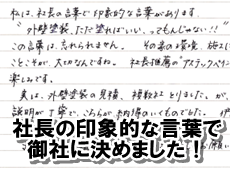 私は、社長の言葉で印象的な言葉があります。
"外壁塗装、ただ塗ればいい、ってもんじゃない!!"
この言葉は、忘れられません。その家の環境、施工
ことこそが、大切なんですね。社長推薦の"アステックペイント
楽しみです。
実は、外壁塗装の見積、複数社とりました。が、
説明が丁寧で、こちらが納得のいくものでした。
社長の印象的な言葉で
御社に決めました!